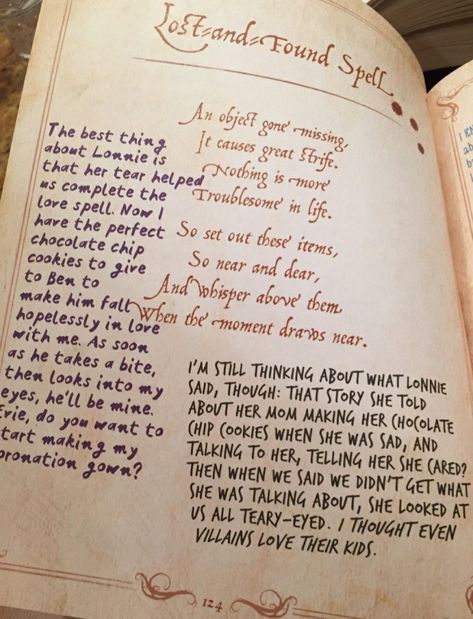 Lost-and-Found Spell
An object gone missing,
It causes great strife.
Nothing is more
Troublesome in life.
So set out these items,
So near and dear,
And whisper above them
When the moment draws near.
The best thing
about Lonnie is
that her tear helped
us complete the
love spell. Now I
have the perfect
chocolate chip
cookies to give
to Ben to
make him fall
hopelessly in love
with me. As soon
as he takes a bite,
then looks into my
eyes, he'll be mine.
Evie, do you want to
start making my
coronation gown?
I'M STILL THINKING ABOUT WHAT LONNIE
SAID, THOUGH: THAT STORY SHE TOLD
ABOUT HER MOM MAKING HER CHOCOLATE
CHIP COOKIES WHEN SHE WAS SAD, AND
TALKING TO HER, TELLING HER SHE CARED?
THEN WHEN WE SAID WE DIDN'T GET WHAT
SHE WAS TALKING ABOUT, SHE LOOKED AT
US ALL TEARY-EYED. I THOUGHT EVEN
VILLAINS LOVE THEIR KIDS.
124